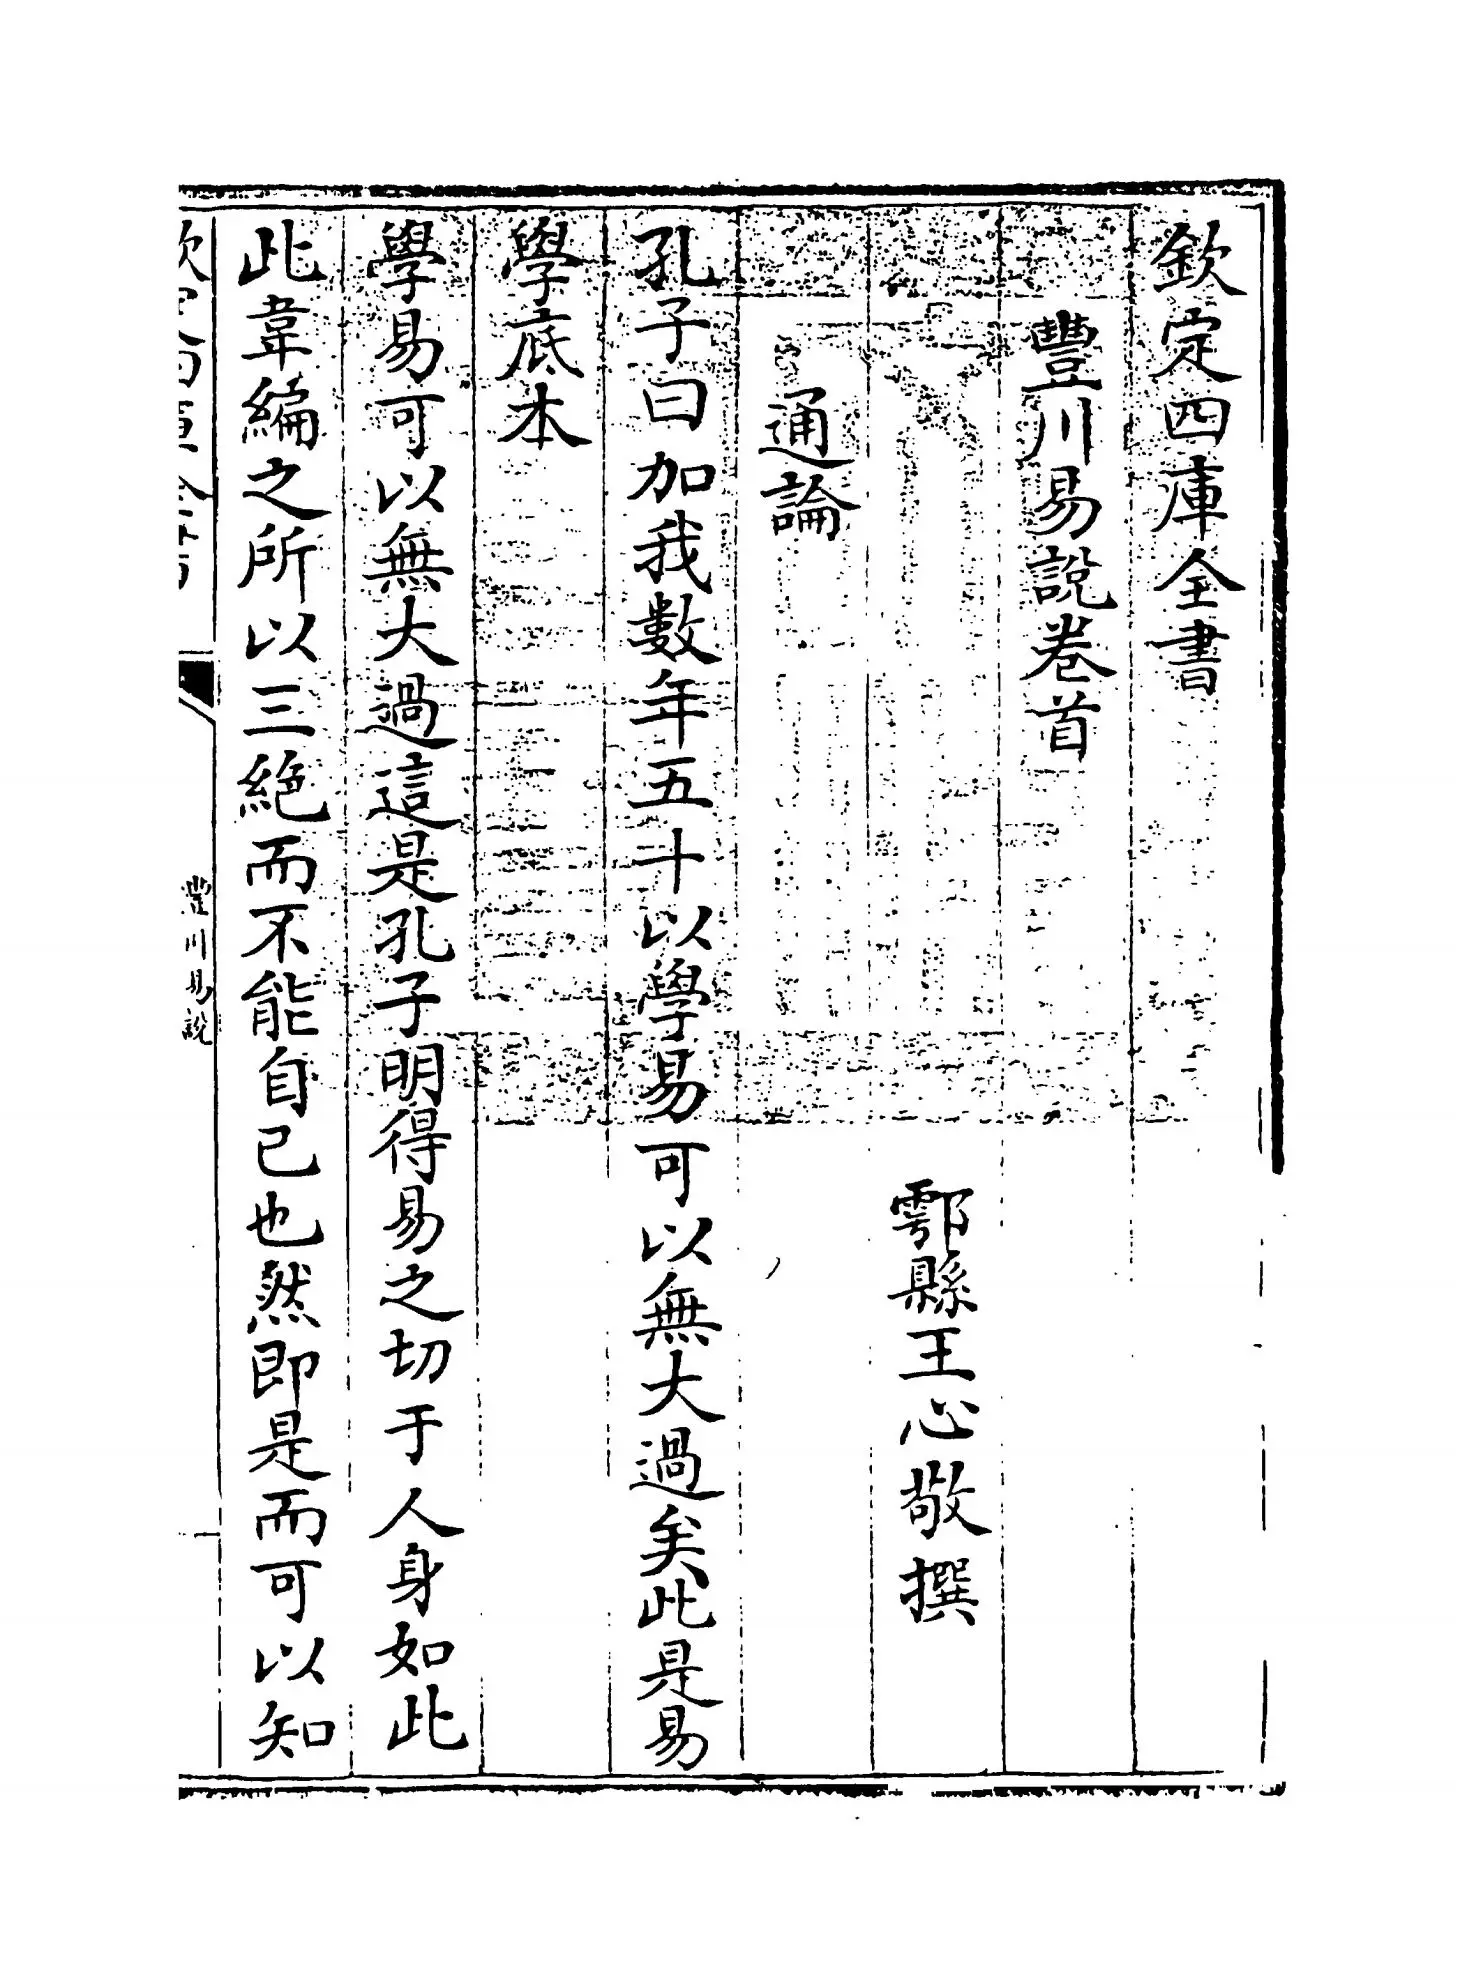 欽定四庫全書
豐川易說卷首
鄠縣王心敬撰
通論
孔子曰加我數年五十以學易可以無大過矣此是易
學底本
學易可以無大過這是孔子明得易之切于人身如此
此韋編之所以三絶而不能自已也然即是而可以知
豐川易說